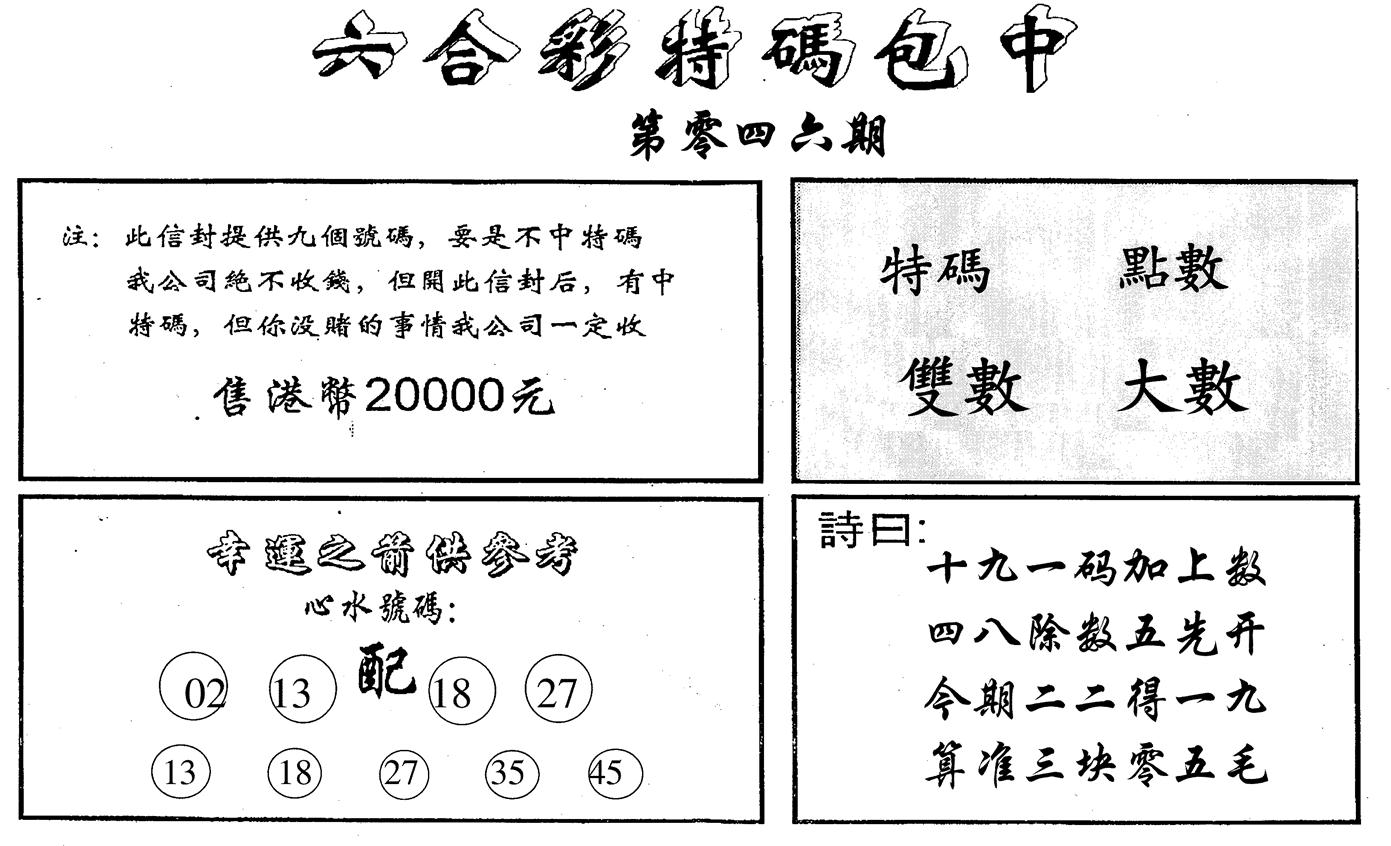 六合彩特碼包中
第零四六期
注：此信封提供九個號碼，要是不中特碼
我公司絕不收錢，但開此信封后，有中
特碼，但你没賭的事情我公司一定收
售港幣20000元
特碼 點數
雙數 大數
幸運之箭供參考
心水號碼：
02 13 配 18 27
13 18 27 35 45
詩曰：
十九一码加上数
四八除数五先开
今期二二得一九
算准三块零五毛